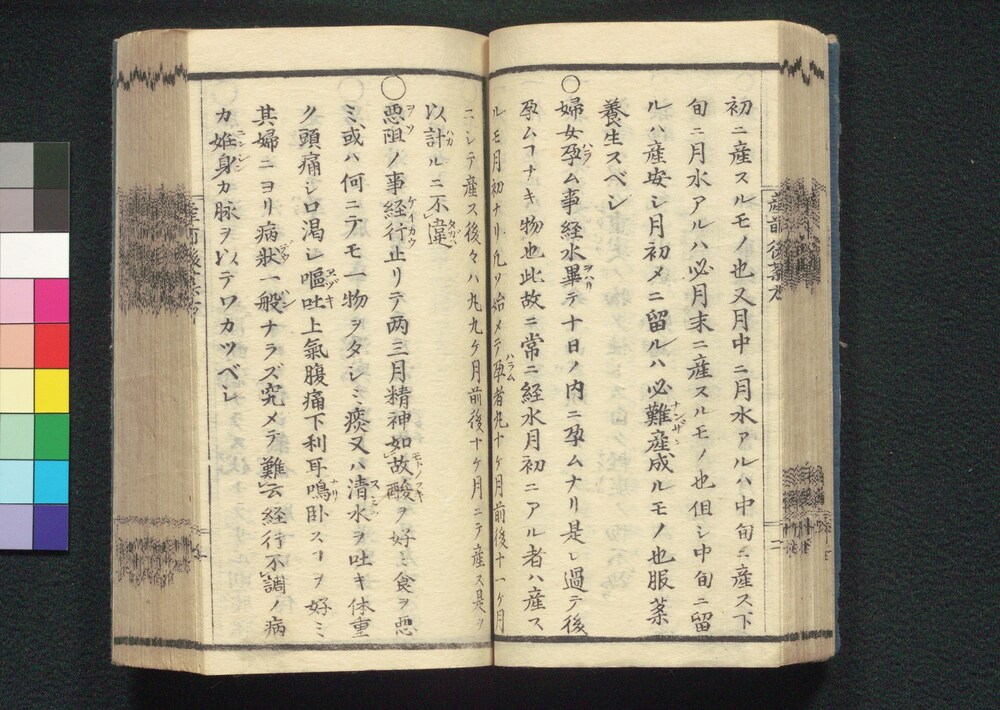 初ニ産スルモノ也又月中ニ月水アルハ中旬ニ産ス下
旬ニ月水アルハ必月末ニ産スルモノ也但シ中旬ニ留
ルハ産安シ月初メニ留ルハ必難産成ルモノ也服薬
養生スベシ
○婦女孕ム事経水畢テ十日ノ内ニ孕ムナリ是レ過テ後
孕ムコナキ物也此故ニ常ニ経水月初ニアル者ハ産ス
ルモ月初ナリ凡ソ始メテ孕者九十ケ月前後十一ケ月
ニシテ産ス後々ハ九九ケ月前後十ケ月ニテ産ス是ヲ
以計ルニ不違
○悪阻ノ事経行止リテ両三月精神如故酸ヲ好ミ食ヲ悪
ミ或ハ何ニテモ一物ヲタシミ痰又ハ清水ヲ吐キ体重
ク頭痛シ口渇シ嘔吐上氣腹痛下利耳鳴卧スコヲ好ミ
其婦ニヨリ病状一般ナラズ究メテ難云経行不調ノ病
カ姙身カ脉ヲ以テワカツベシ
産前後薬方